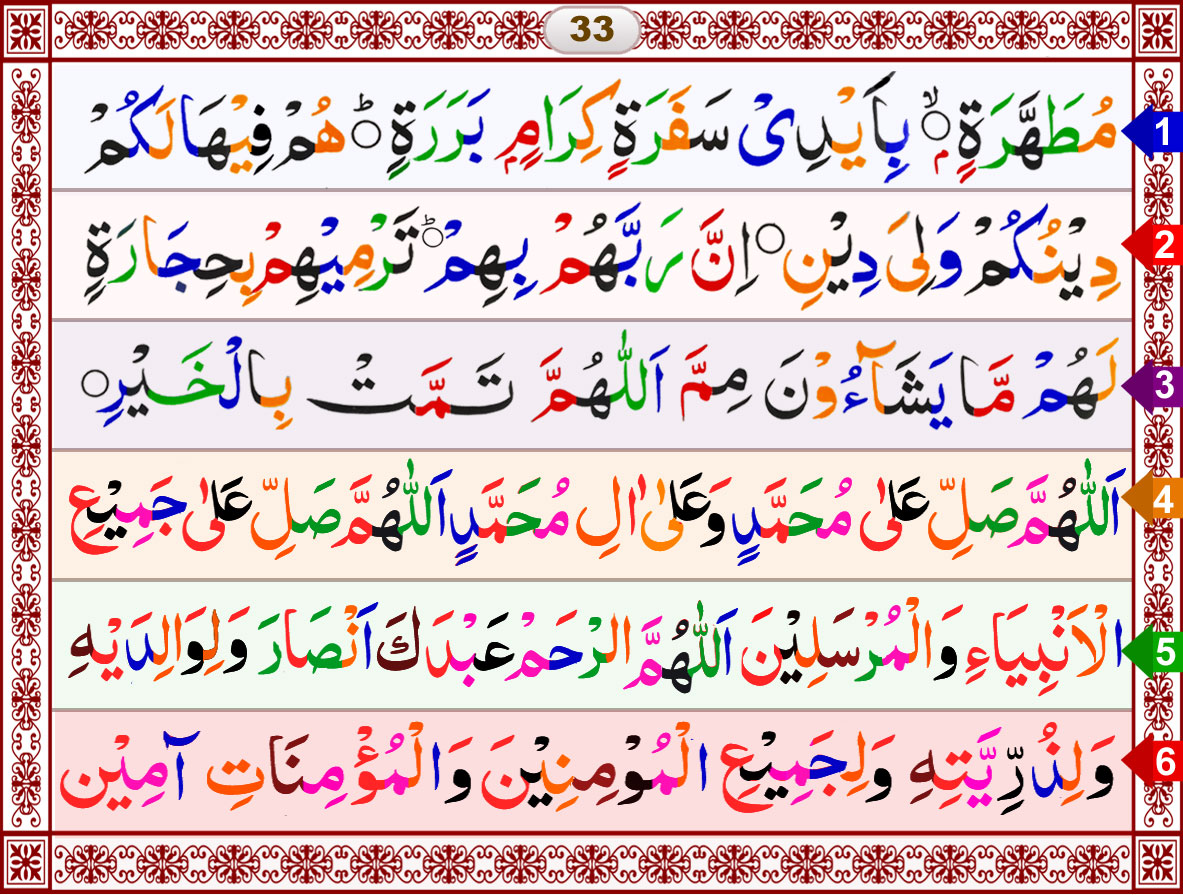 33
1 مُطَهَّرَةٍۭ ۙ بِاَيْدِىْ سَفَرَةٍ كِرَامٍۭ بَرَرَةٍ ؕ هُمْ فِيْهَا لَكُمْ
2 دِيْنُكُمْ وَلِىَ دِيْنِ ۝ اِنَّ رَبَّهُمْ بِهِمْ ؕ تَرْمِيْهِمْ بِحِجَارَةٍ
3 لَهُمْ مَّا يَشَآءُوْنَ مِمَّ اَللّٰهُمَّ تَمَّتْ بِالْخَيْرِ ۝
4 اَللّٰهُمَّ صَلِّ عَلٰى مُحَمَّدٍ وَعَلٰى اٰلِ مُحَمَّدٍ اَللّٰهُمَّ صَلِّ عَلٰى جَمِيْعِ
5 الْاَنْبِيَاءِ وَالْمُرْسَلِيْنَ اَللّٰهُمَّ الرْحَمْ عَبْدَكَ اَنْصَارَ وَلِوَالِدَيْهِ
6 وَلِذُرِّيَّتِهِ وَلِجَمِيْعِ الْمُوْمِنِيْنَ وَالْمُؤْمِنَاتِ آمِيْن